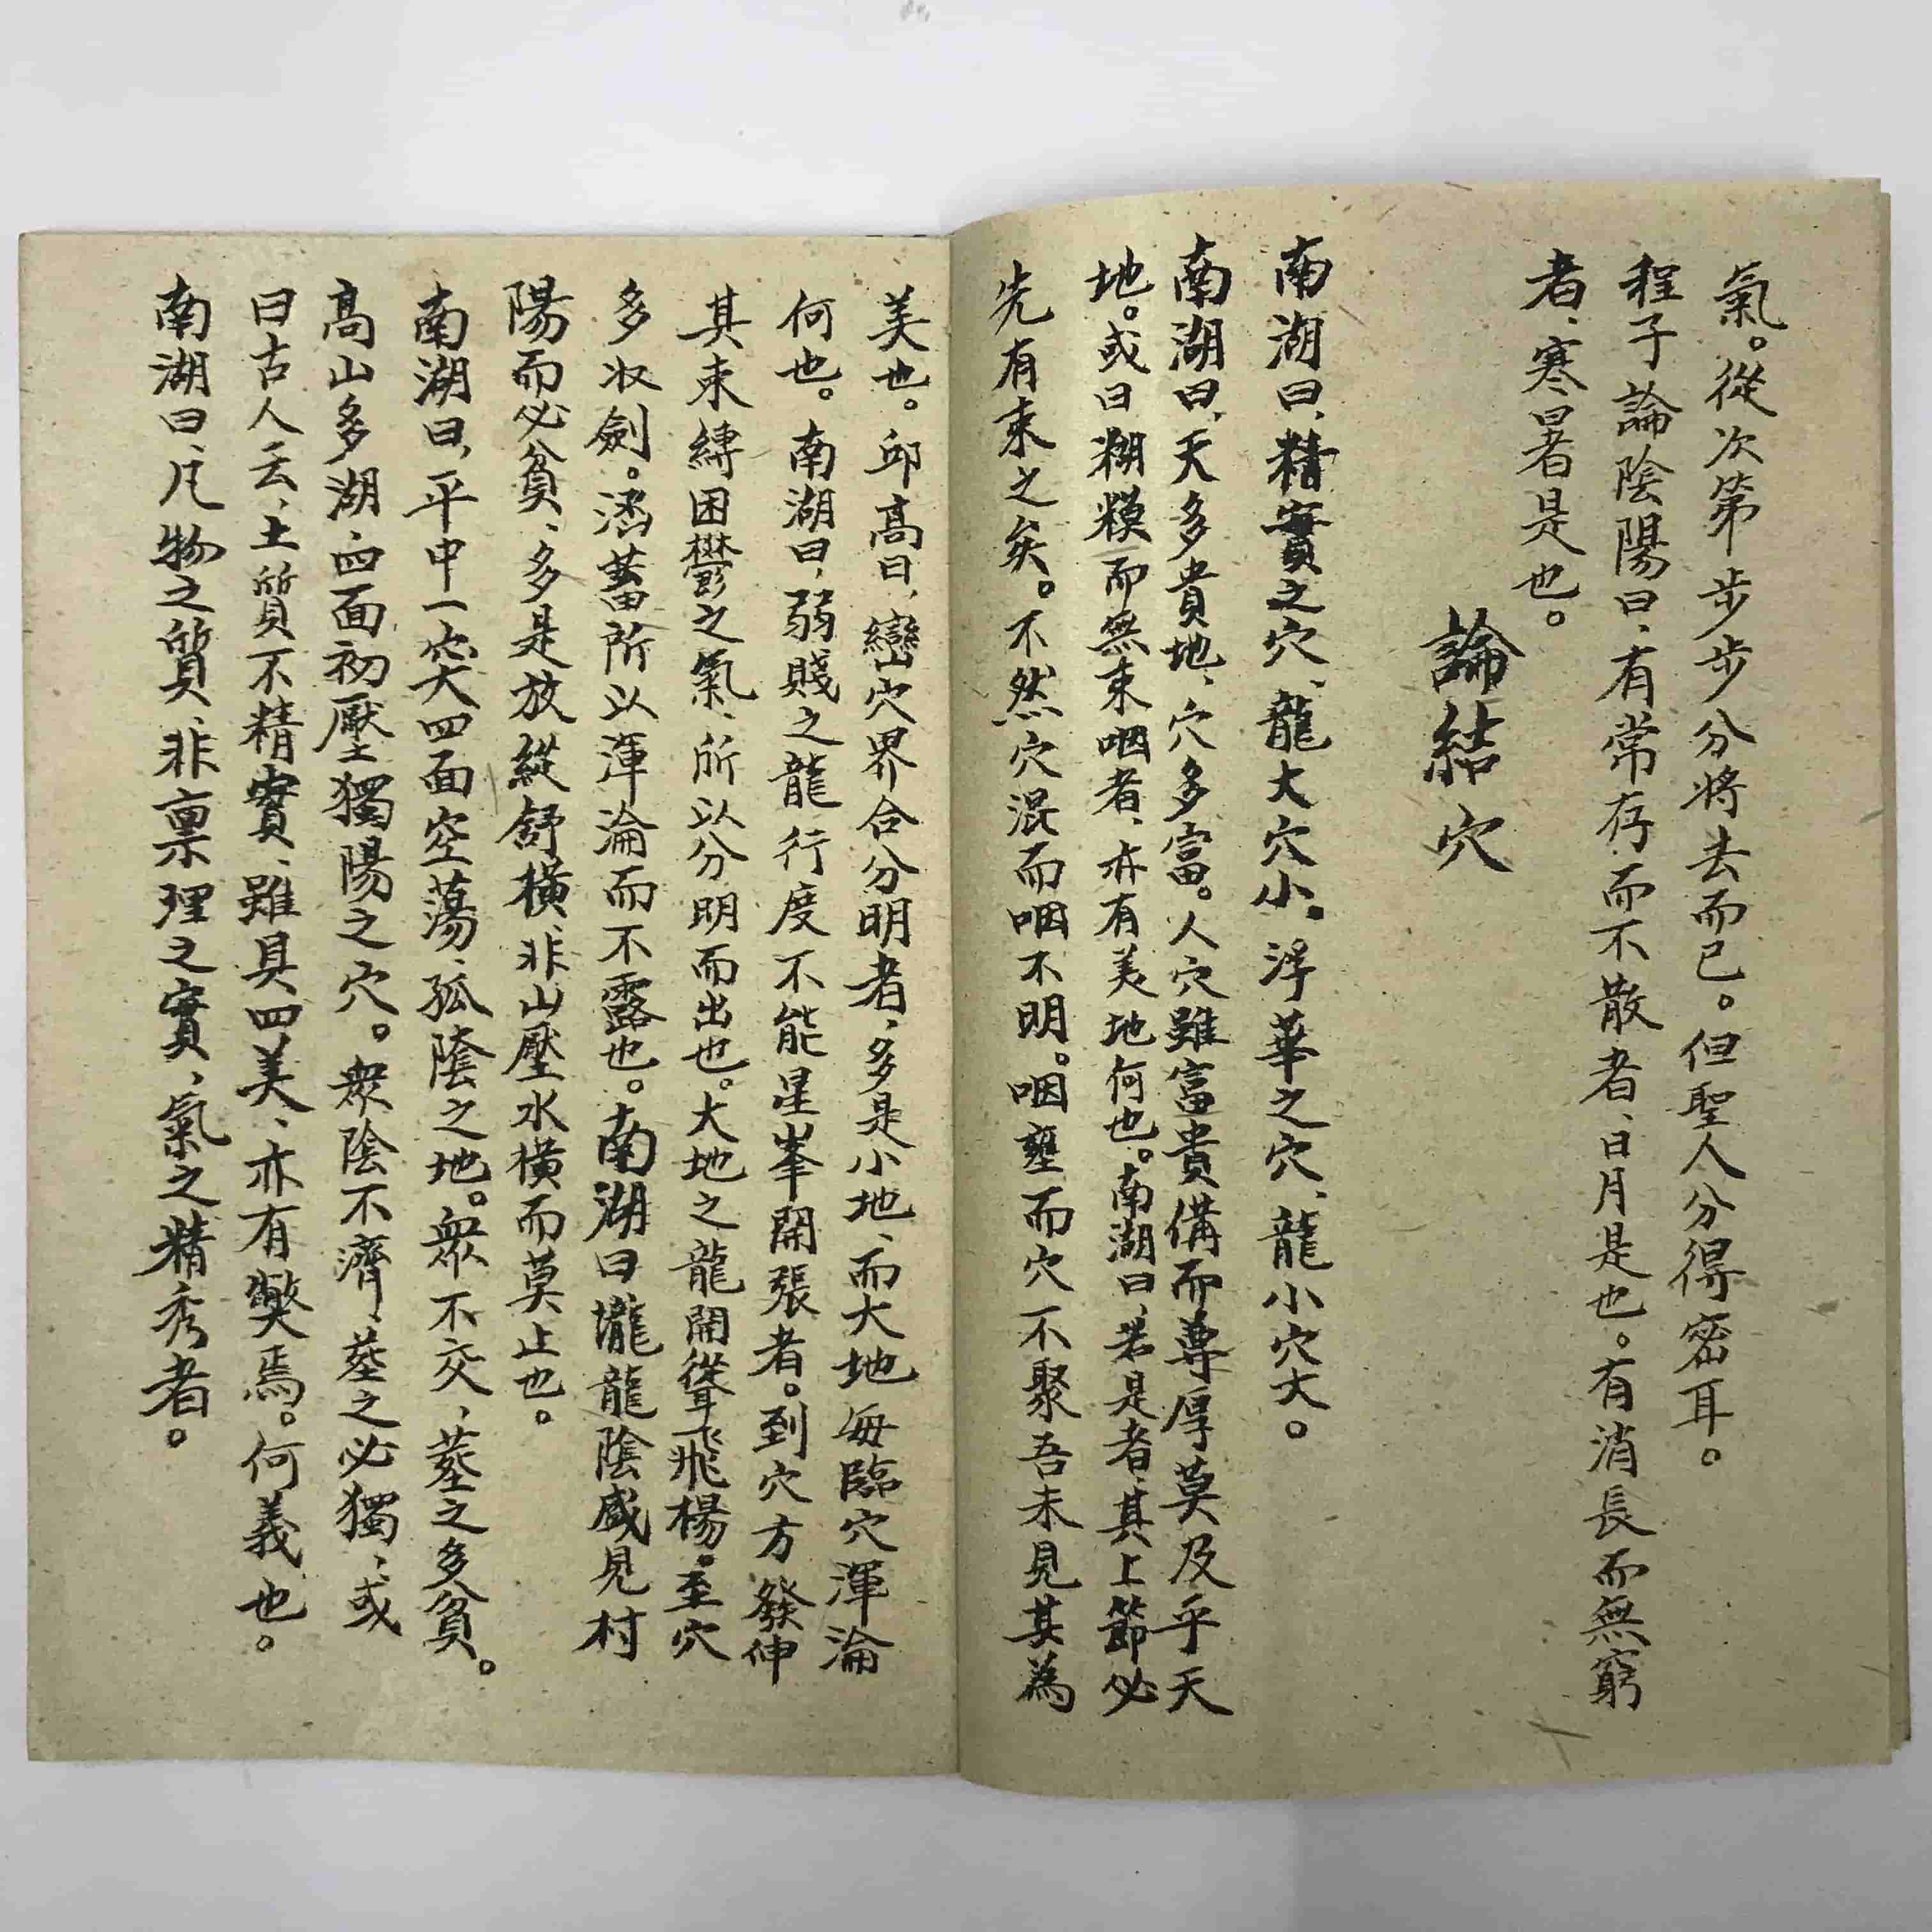 氣。從次第步步分将去而已。但聖人分得密耳。
程子論陰陽曰、有常存而不散者、日月是也。有消長而無窮
者、寒暑是也。
論結穴
南湖曰、精實之穴、龍大穴小。浮華之穴、龍小穴大。
南湖曰、天多貴地、穴多富。人穴雖富貴備而尊厚莫及乎天
地。或曰糊糢而無束咽者、亦有美地何也。南湖曰、若是者、其上節必
先有束之矣。不然穴混而咽不明。咽壅而穴不聚吾未見其為
美也。邱髙曰、巒穴界合分明者、多是小地、而大地每臨穴渾淪
何也。南湖曰、弱賤之龍行度不能星峯開張者。到穴方發伸
其束縛困鬱之氣、所以分明而出也。大地之龍開聳飛楊。至穴
多収劍。涵蓄所以渾淪而不露也。南湖曰壠龍陰盛見村
陽而必貧、多是放縱舒橫、非山壓水橫而莫止也。
南湖曰、平中一突四面空蕩、孤陰之地。衆不交、塟之多貧。
髙山多湖、四面初壓獨陽之穴。衆陰不濟、塟之必獨、或
曰古人云、土質不精實、雖具四美、亦有獘焉。何義也。
南湖曰、凡物之質、非禀理之實、氣之精秀者。